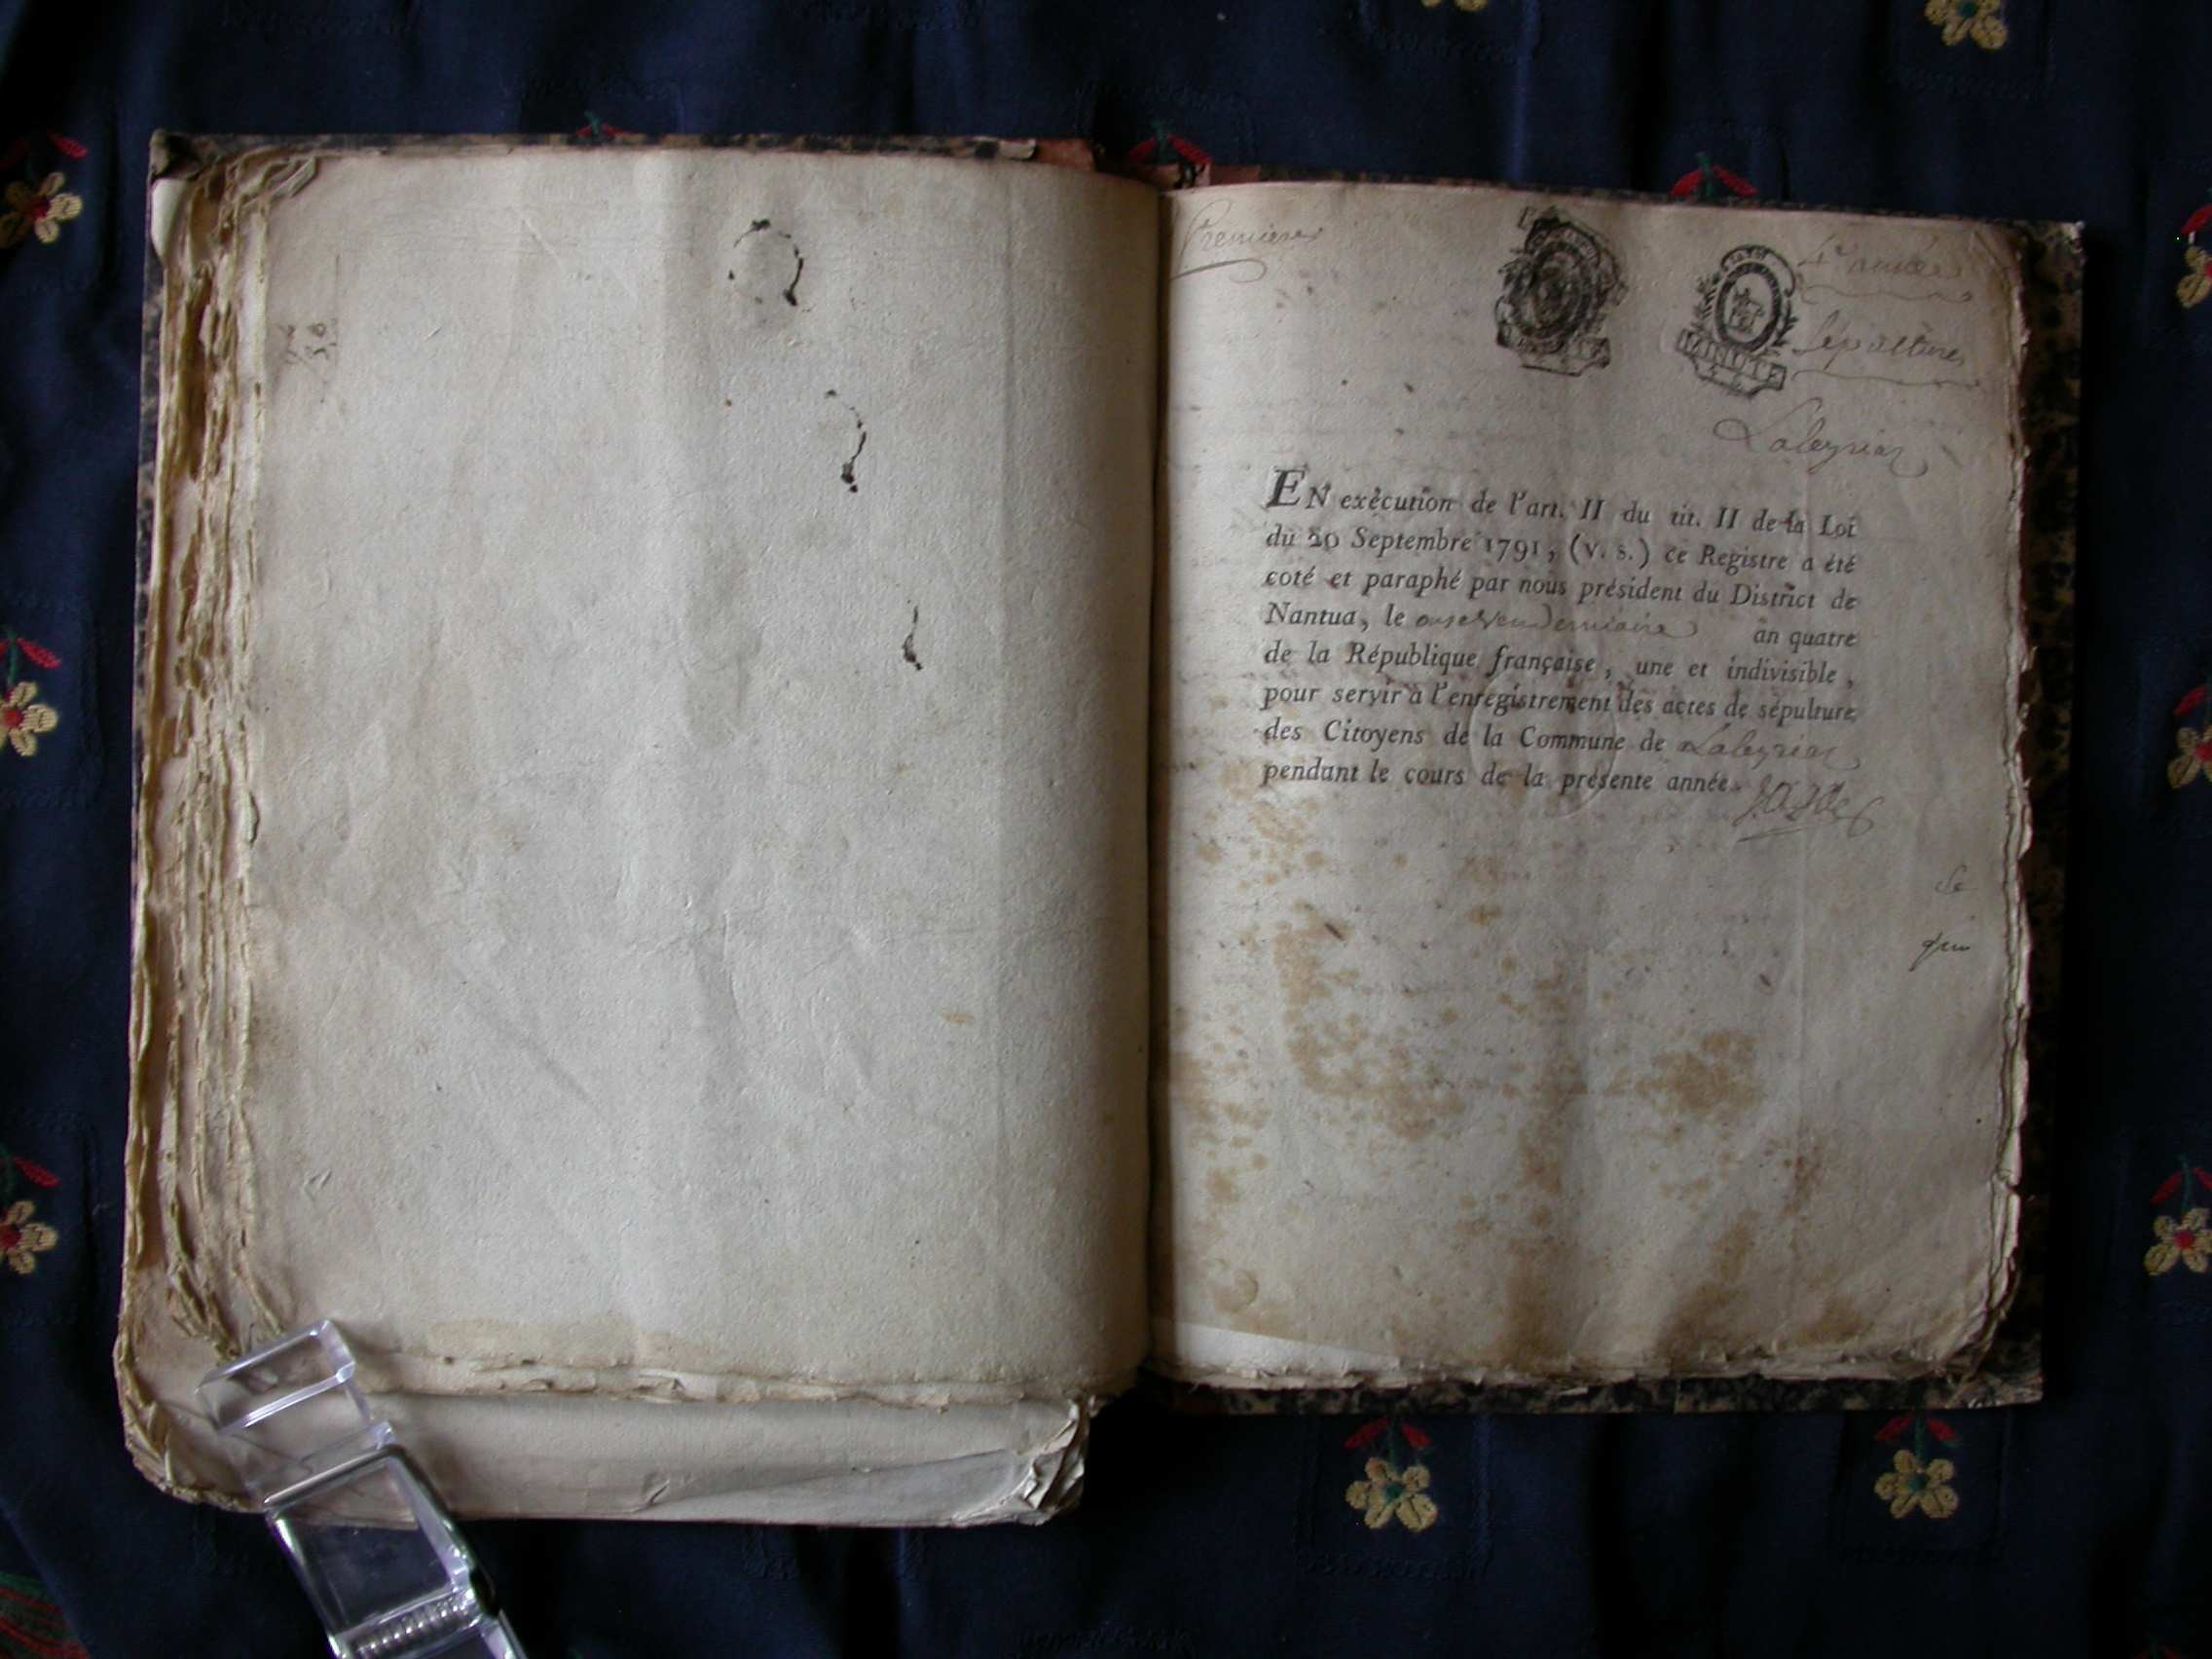 Premiere
4e année
Sépultures
Laleyriat
EN exécution de l'art. II du tit. II de la Loi
du 20 Septembre 1791, (v. s.) ce Registre a été
coté et paraphé par nous président du District de
Nantua, le onze Vendemiaire an quatre
de la République française, une et indivisible,
pour servir à l'enregistrement des actes de sépulture
des Citoyens de la Commune de Laleyriat
pendant le cours de la présente année.